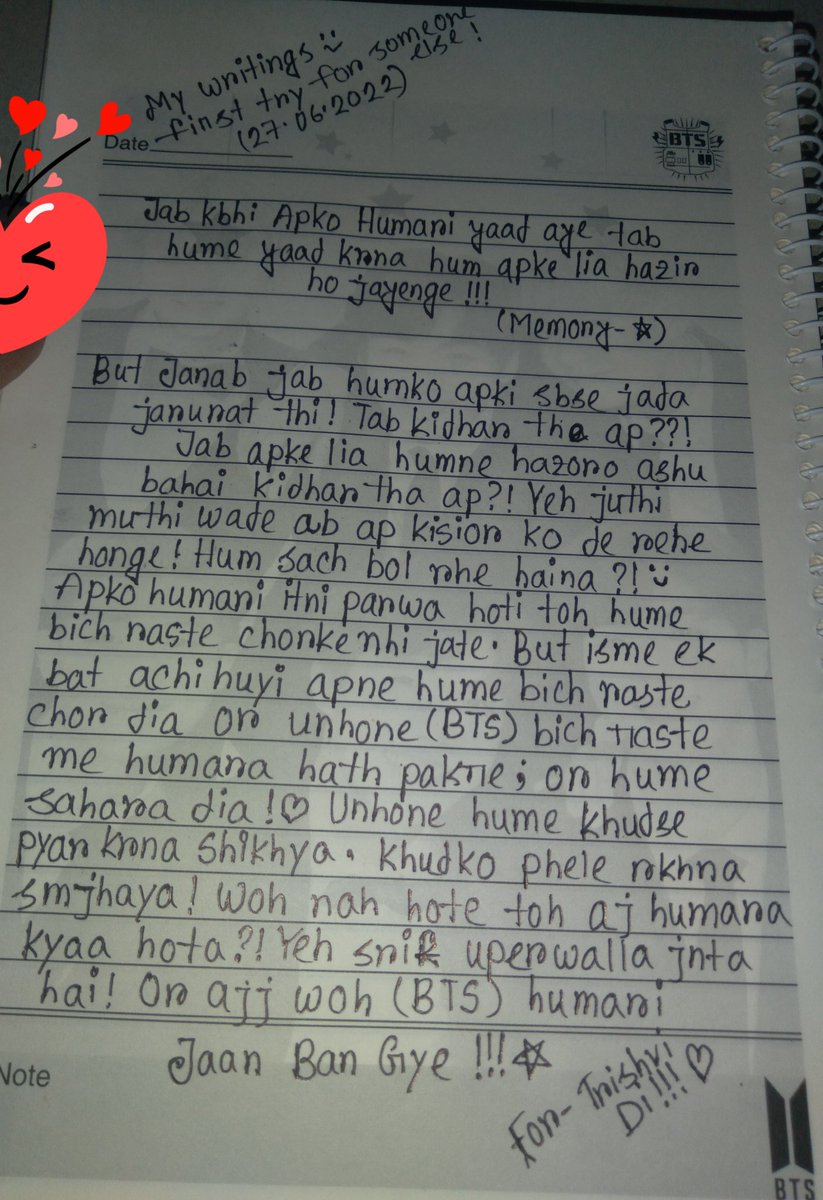 My writings
first try for someone else!
(27.06.2022)
Date
BTS
Jab kbhi Apko Humari yaad aye tab
hume yaad krna hum apke lia hazir
ho jayenge !!!
(Memory-☆)
But Janab jab humko apki sbse jada
jarurat thi! Tab kidhar the ap??!
Jab apke lia humne hazoro ashu
bahai kidhar tha ap?! Yeh juthi
muthi wade ab ap kisior ko de rehe
honge! Hum sach bol rhe haina ?!
Apko humari itni parwa hoti toh hume
bich raste chorke nhi jate. But isme ek
bat achi huyi apne hume bich raste
chor dia or unhone (BTS) bich raste
me humara hath pakre; or hume
sahara dia!♡ Unhone hume khudse
pyar krna shikhya. Khudko phele rkhna
smjhaya! Woh nah hote toh aj humara
kyaa hota?! Yeh srif uperwalla jnta
hai! Or ajj woh (BTS) humari
Jaan Ban Gye !!!☆
Note
For- Trishui
Di!!! ♡
BTS